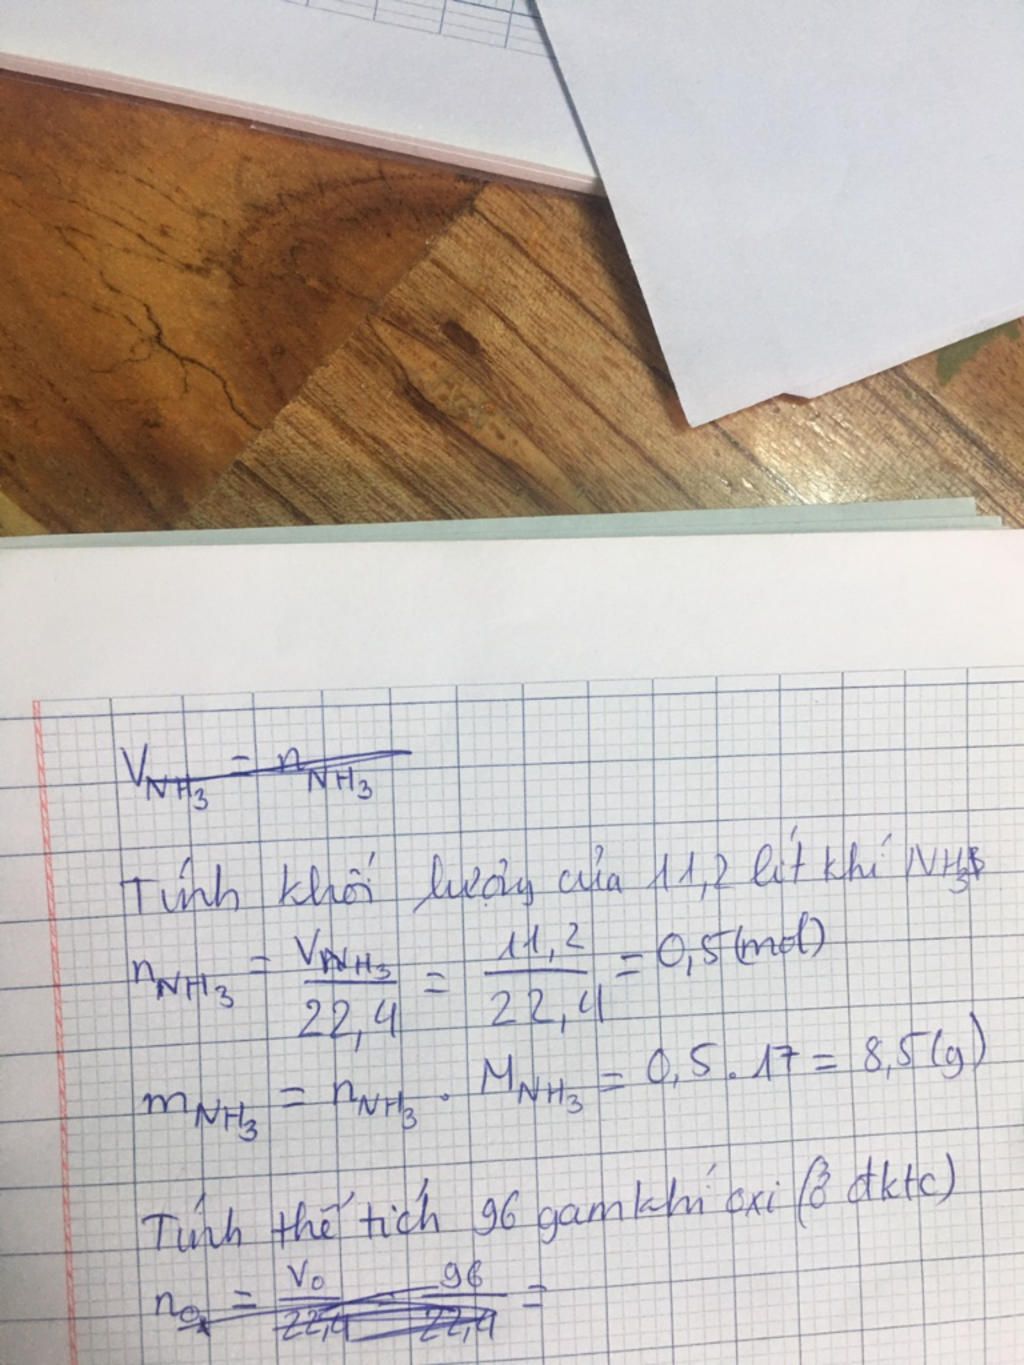 V_NH3 = n_NH3
Tính khối lượng của 11,2 lít khí NH3
n_NH3 = V_NH3 / 22,4 = 11,2 / 22,4 = 0,5 (mol)
m_NH3 = n_NH3 . M_NH3 = 0,5 . 17 = 8,5 (g)
Tính thể tích 96 gam khí oxi (ở đktc)
n_O = V_O / 22,4 = 96 / 22,4 =